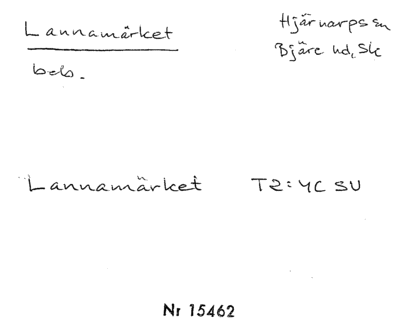 Lannamärket
Hjärnarps sn
Bjäre hd, Sk
beb.
Lannamärket T2:4C SU
Nr 15462